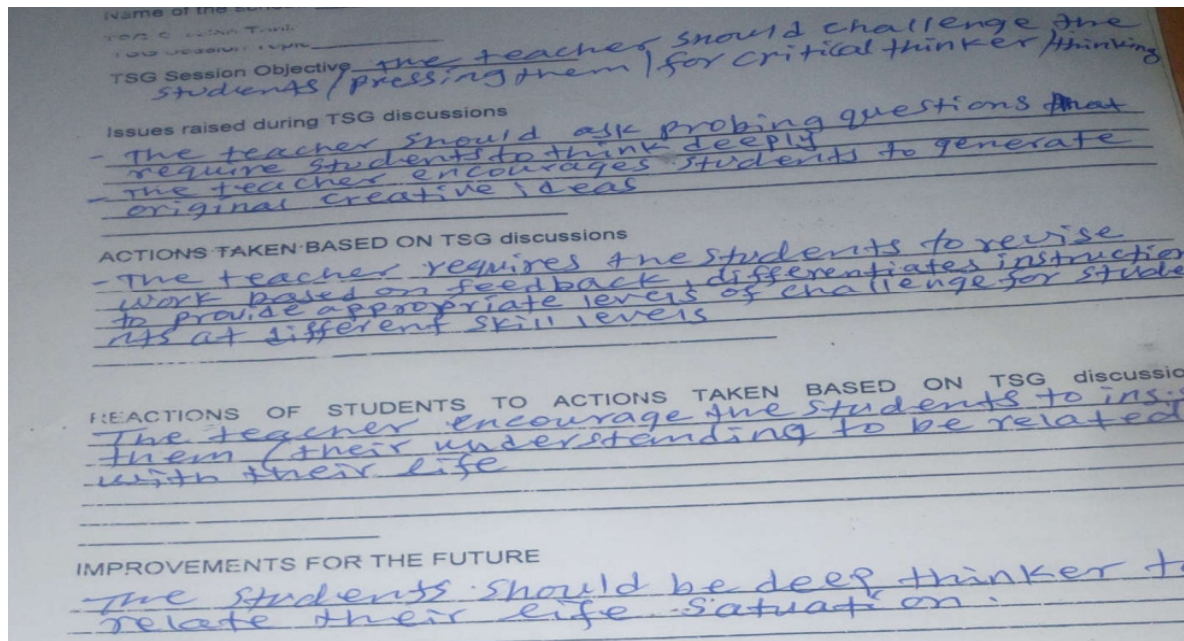 Name of the
TSG Session Objective the teacher should challenge the
students/pressing them/for critical thinker/thinking
Issues raised during TSG discussions
- The teacher should ask probing questions that
require students to think deeply
- The teacher encourages students to generate
original creative ideas
ACTIONS TAKEN BASED ON TSG discussions
- The teacher requires the students to revise
work based on feedback, differentiates instruction
to provide appropriate levels of challenge for stude
nts at different skill levels
REACTIONS OF STUDENTS TO ACTIONS TAKEN BASED ON TSG discussio
The teacher encourage the students to
them (their understanding to be related
with their life
IMPROVEMENTS FOR THE FUTURE
The students should be deep thinker to
relate their life satuation.